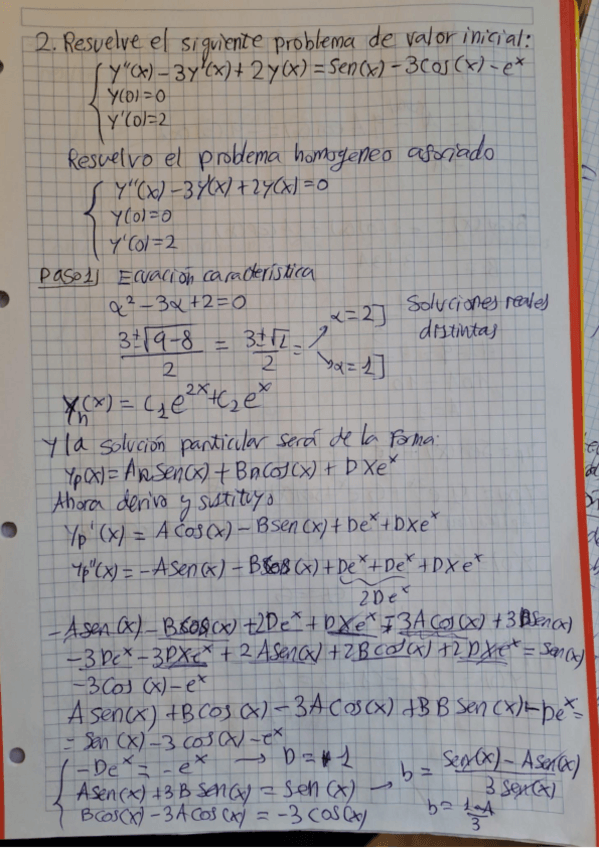 2. Resuelve el siguiente problema de valor inicial:
y''(x) - 3y'(x) + 2y(x) = sen(x) - 3cos(x) - e^x
y(0) = 0
y'(0) = 2
Resuelvo el problema homogeneo asociado
y''(x) - 3y'(x) + 2y(x) = 0
y(0) = 0
y'(0) = 2
Paso 1) Ecuación característica
α² - 3α + 2 = 0
(3±√(9-8))/2 = (3±√1)/2 = α=2] α=1] Soluciones reales distintas
y_h(x) = C₁e^(2x) + C₂e^x
Y la solución particular será de la forma:
Yp(x) = A sen(x) + B cos(x) + Dxe^x
Ahora derivo y sustituyo
Yp'(x) = A cos(x) - B sen(x) + De^x + Dxe^x
Yp''(x) = -A sen(x) - B cos(x) + De^x + De^x + Dxe^x
2De^x
-A sen(x) - B cos(x) + 2De^x + Dxe^x - 3A cos(x) + 3B sen(x)
-3De^x - 3Dxe^x + 2A sen(x) + 2B cos(x) + 2Dxe^x = sen(x)
-3cos(x) - e^x
A sen(x) + B cos(x) - 3A cos(x) + 3B sen(x) - De^x =
= sen(x) - 3cos(x) - e^x
-De^x = -e^x → D = 1
A sen(x) + 3B sen(x) = sen(x) → b = (sen(x) - A sen(x))/(3 sen(x))
B cos(x) - 3A cos(x) = -3cos(x) b = (1-A)/3